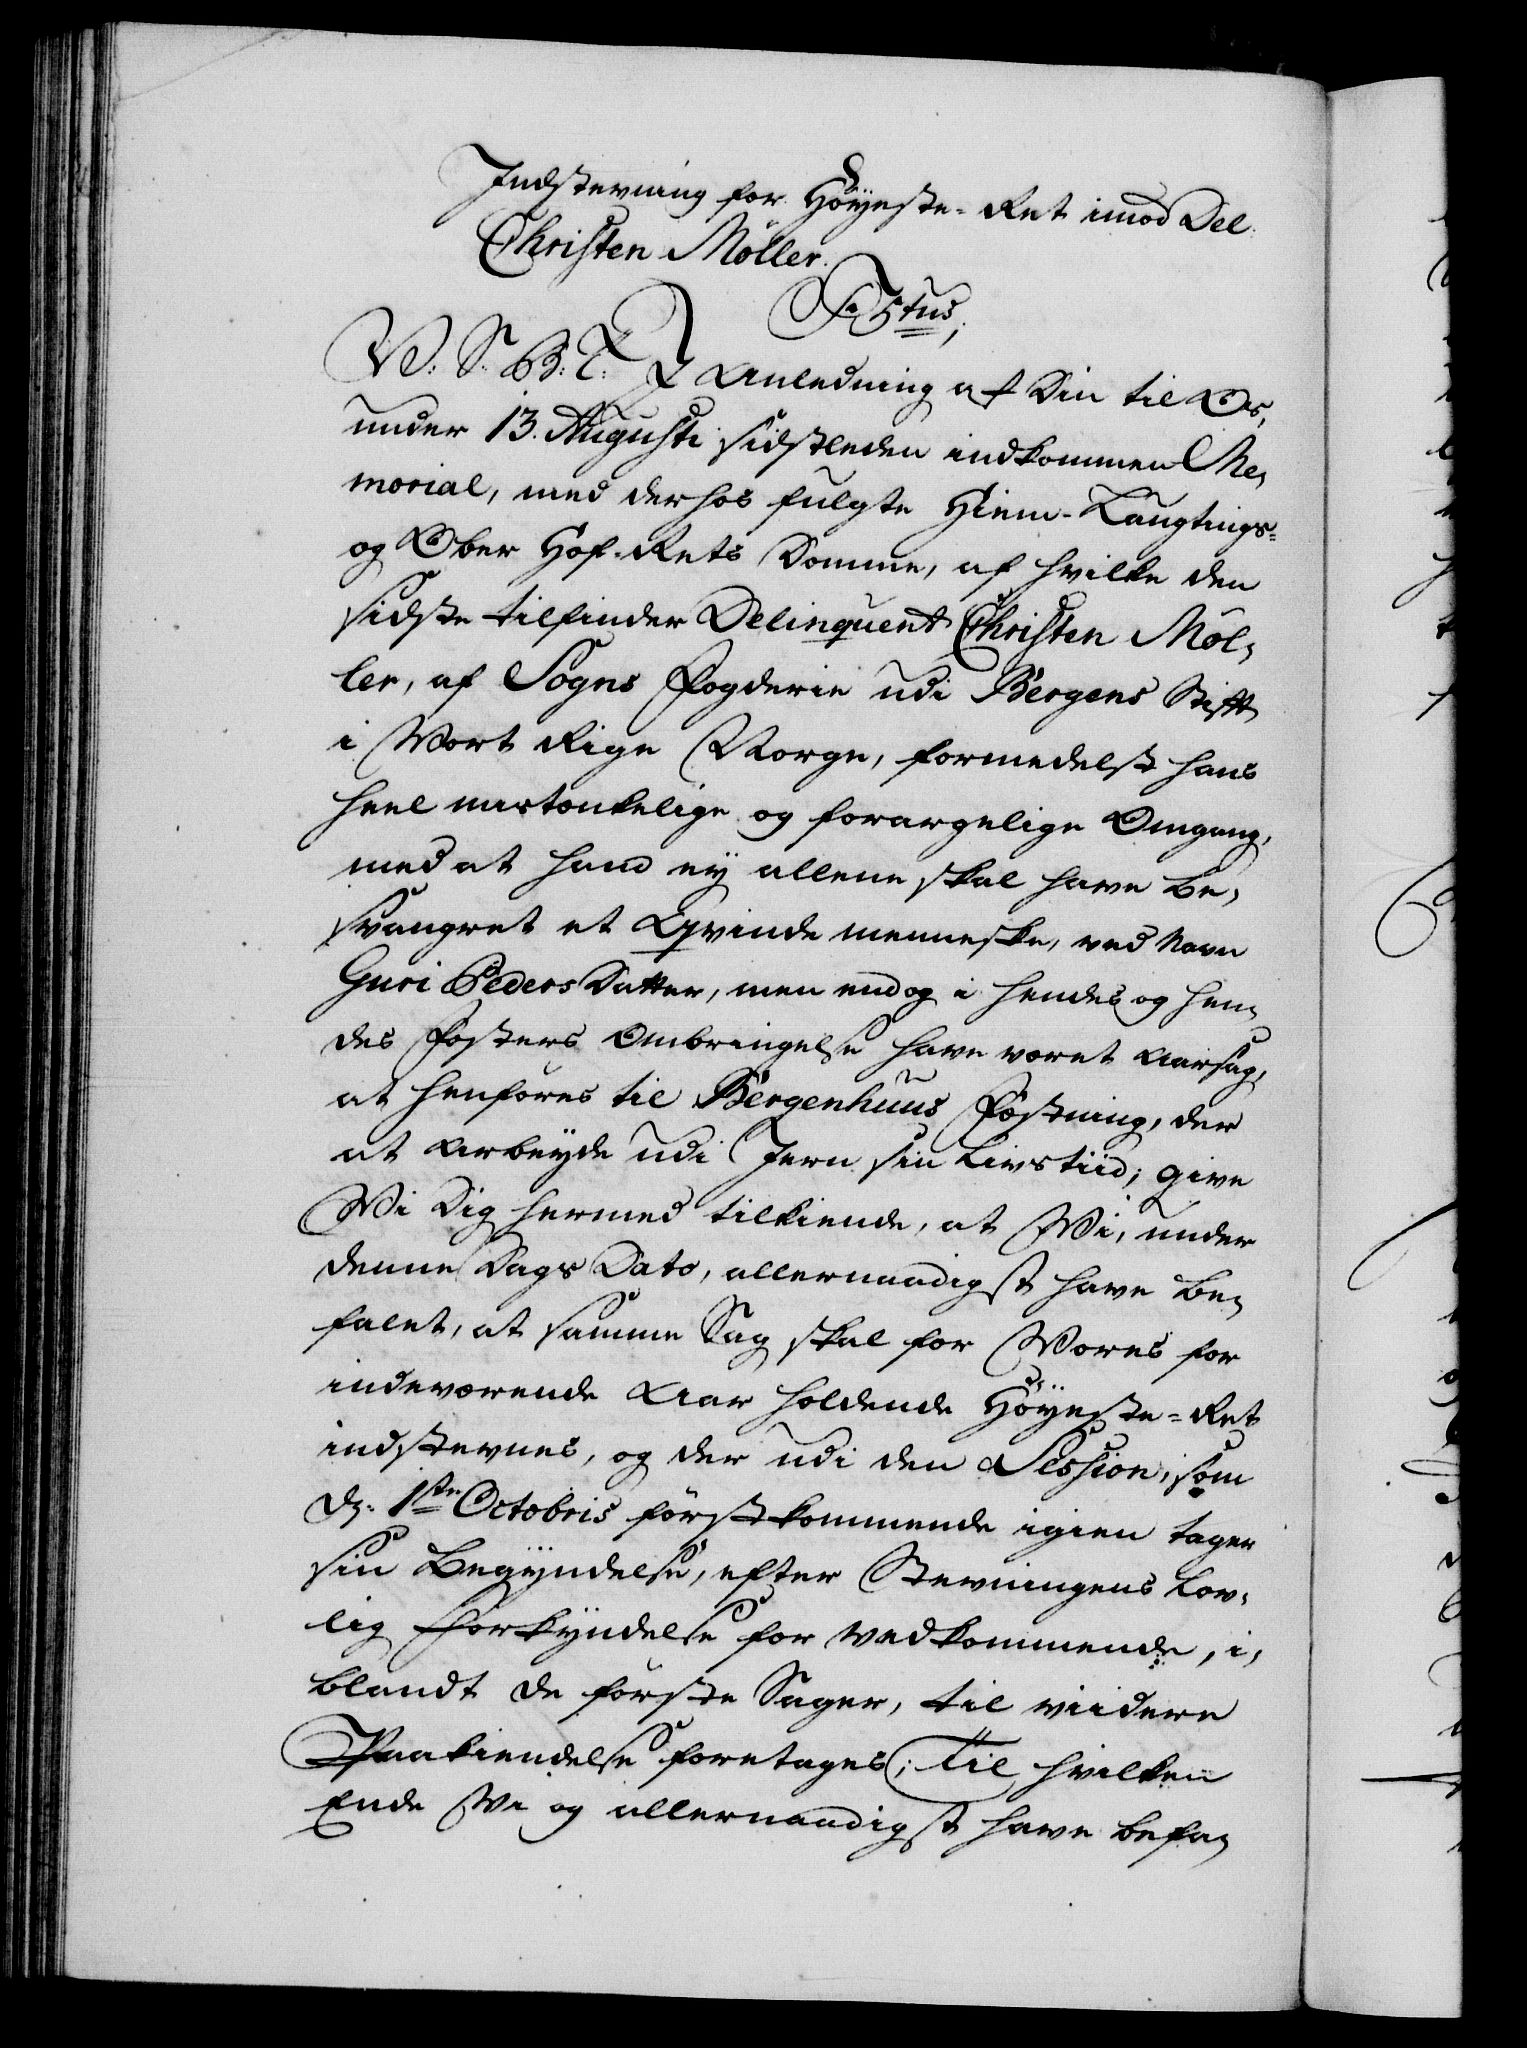 Indstevning for Höyeste-Ret imod Del.
Christen Möller.
F. 5tus,
W. S. B. T. I Anledning af Din til Os,
under 13. Augusti sidstleden indkommen Me,
morial, med derhos fulgte Hiem-Laugtings-
og Ober Hof-Rets Domme, af hvilke den
sidste tilfinder Delinquent Christen Möl,
ler, af Sogns Fogderie udi Bergens Stift
i Vort Rige Norge, formedelst hans
heel mistænkelige og forargelige Omgang,
med at hand ey alleene skal have be,
svangret et Qvindemenneske, ved Navn
Guri Peders Datter, men endog i hendes og hen,
des Fosters Ombringelse have været Aarsag,
at henföres til Bergenhuus Fæstning, der
at Arbeyde udi Jern sin Livstiid; give
Wi Dig hermed tilkiende, at Wi, under
denne Dags Dato, allernaadigst have be,
falet, at samme Sag skal for Vores for
indeværende Aar holdende Höyeste-Ret
indstevnes, og der udi den Session, som
d. 1ste Octobris förstkommende igien tager
sin Begyndelse, efter Stevningens lov,
lig Forkyndelse for vedkommende, i,
blandt de förste Sager, til viidere
Paakiendelse foretages; Til hvilken
Ende Wi og allernaadigst have befa,